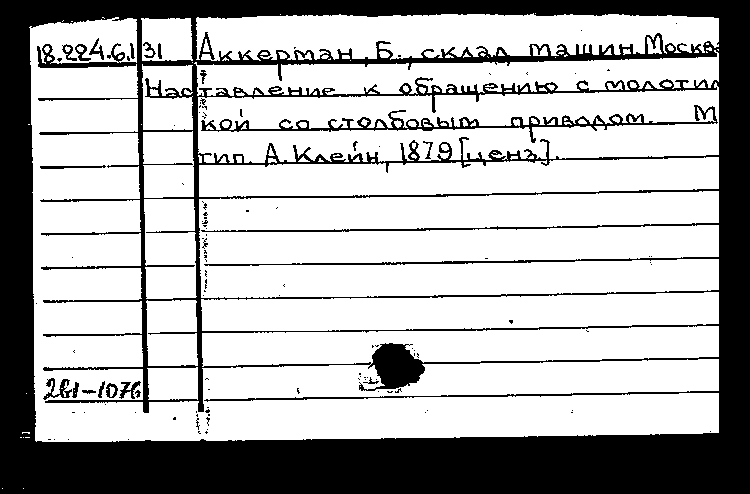 18.224.6.131 Аккерман, Б., склад машин. Москва
Наставление к обращению с молотил
кой со столбовым приводом. М
тип. А. Клейн, 1879 [ценз].
261-1076